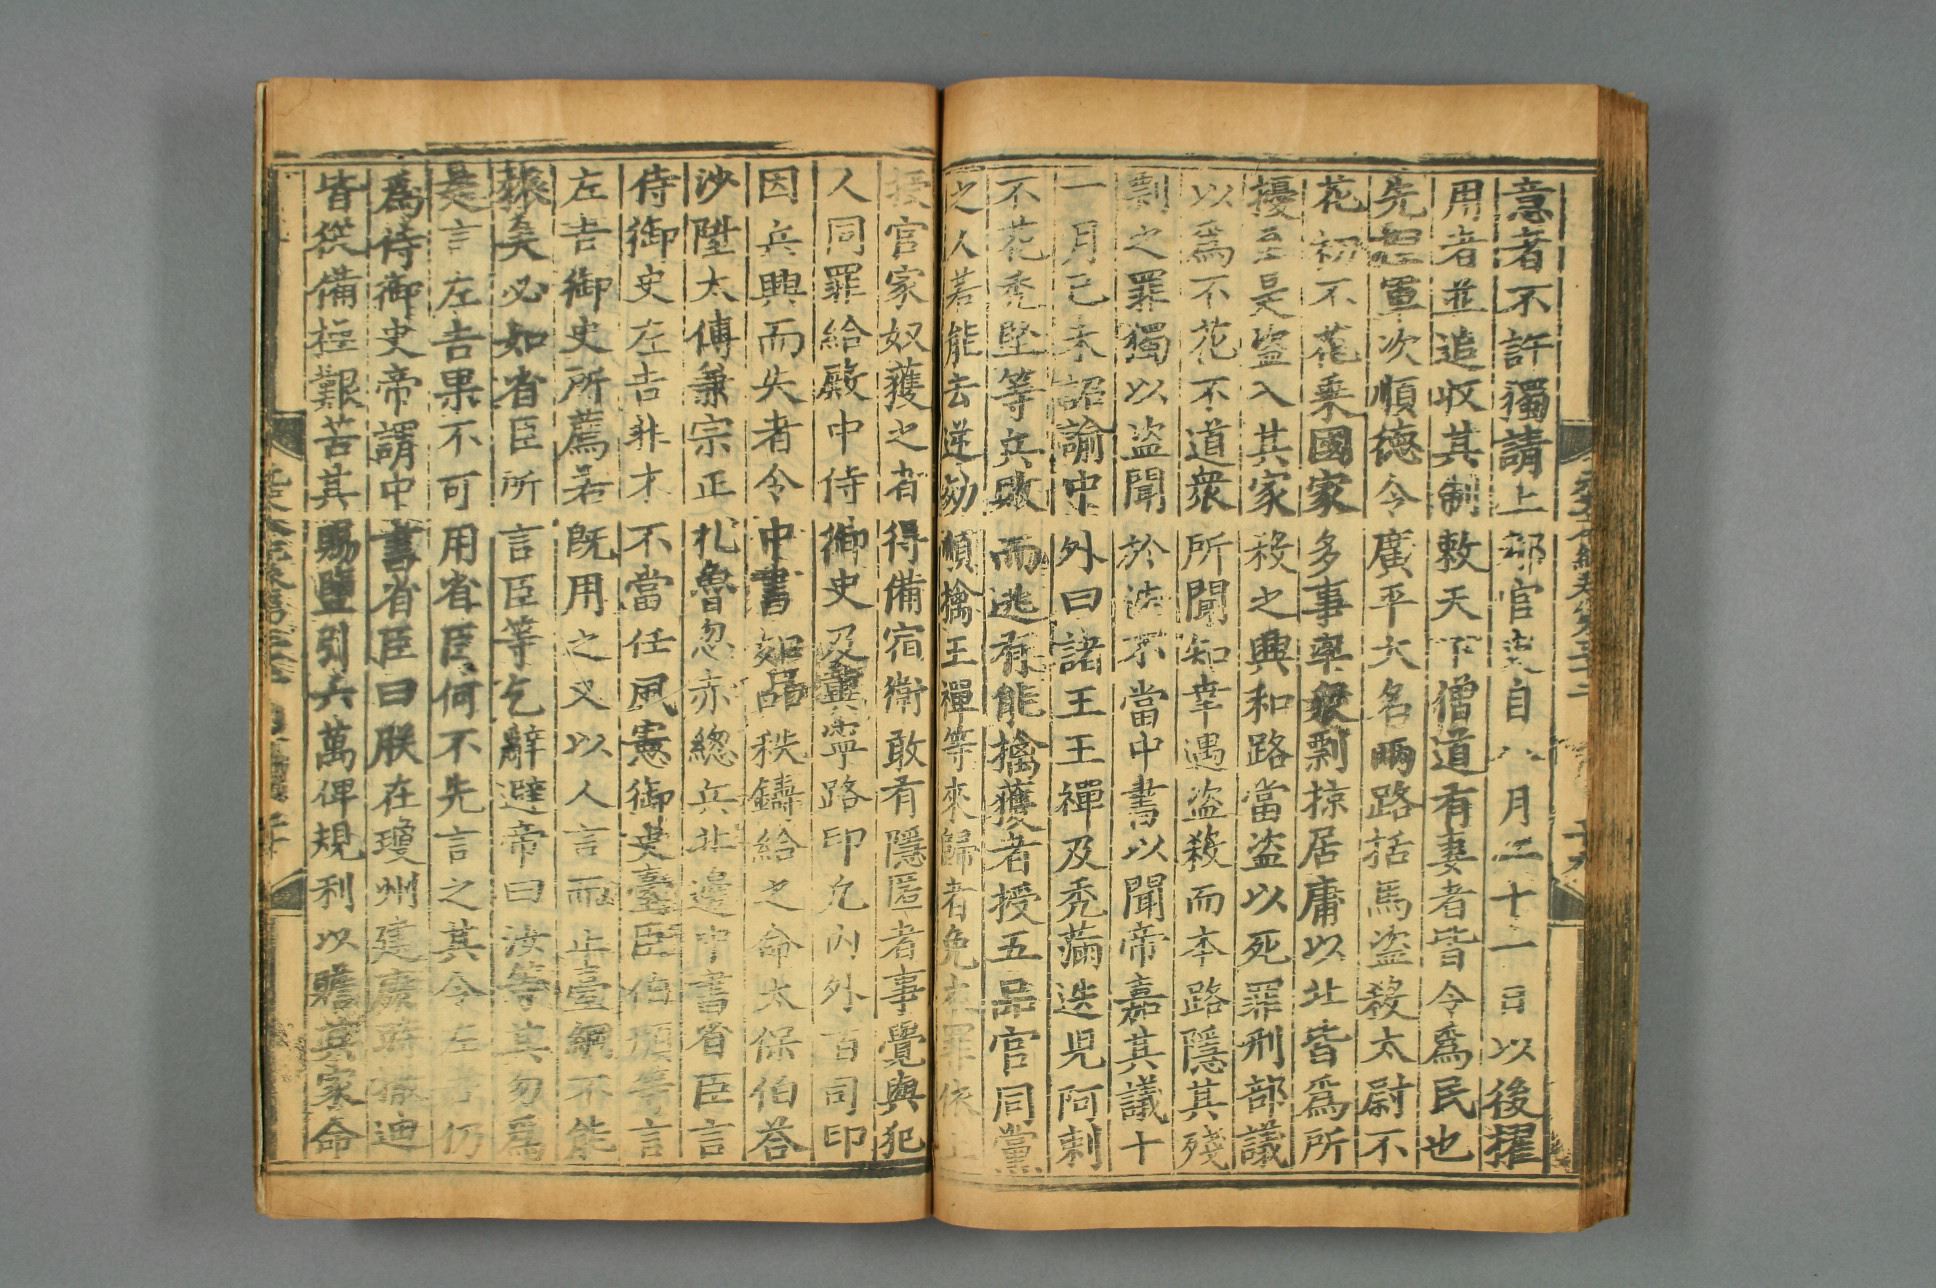 意者不許獨請上都官吏自八月二十一日以後擢
用者並追收其制敕天下僧道有妻者皆令爲民也
先捏軍次順德令廣平大名兩路括馬盜殺太尉不
花初不花乘國家多事率衆剽掠居庸以北皆爲所
擾至是盜入其家殺之興和路當盜以死罪刑部議
以爲不花不道衆所聞知幸遇盜殺而本路隱其殘
剽之罪獨以盜聞於法不當中書以聞帝嘉其議十
一月己未詔諭中外曰諸王王禪及禿滿迭兒阿剌
不花禿堅等兵敗而逃有能擒獲者授五品官同黨
之人若能去逆効順擒王禪等來歸者免本罪依上
授官家奴獲之者得備宿衛敢有隱匿者事覺與犯
人同罪給殿中侍御史及冀寧路印凡內外百司印
因兵興而失者令中書如品秩鑄給之命太保伯荅
沙陞太傅兼宗正札魯忽赤總兵北邊中書省臣言
侍御史左吉非才不當任風憲御史臺臣伯顏等言
左吉御史所薦若旣用之又以人言而止臺綱不能
振矣必如省臣所言臣等乞辭避帝曰汝等其勿爲
是言左吉果不可用省臣何不先言之其令左吉仍
爲侍御史帝謂中書省臣曰朕在瓊州建康時撒迪
皆從備極艱苦其賜鹽引六萬俾規利以贍其家命